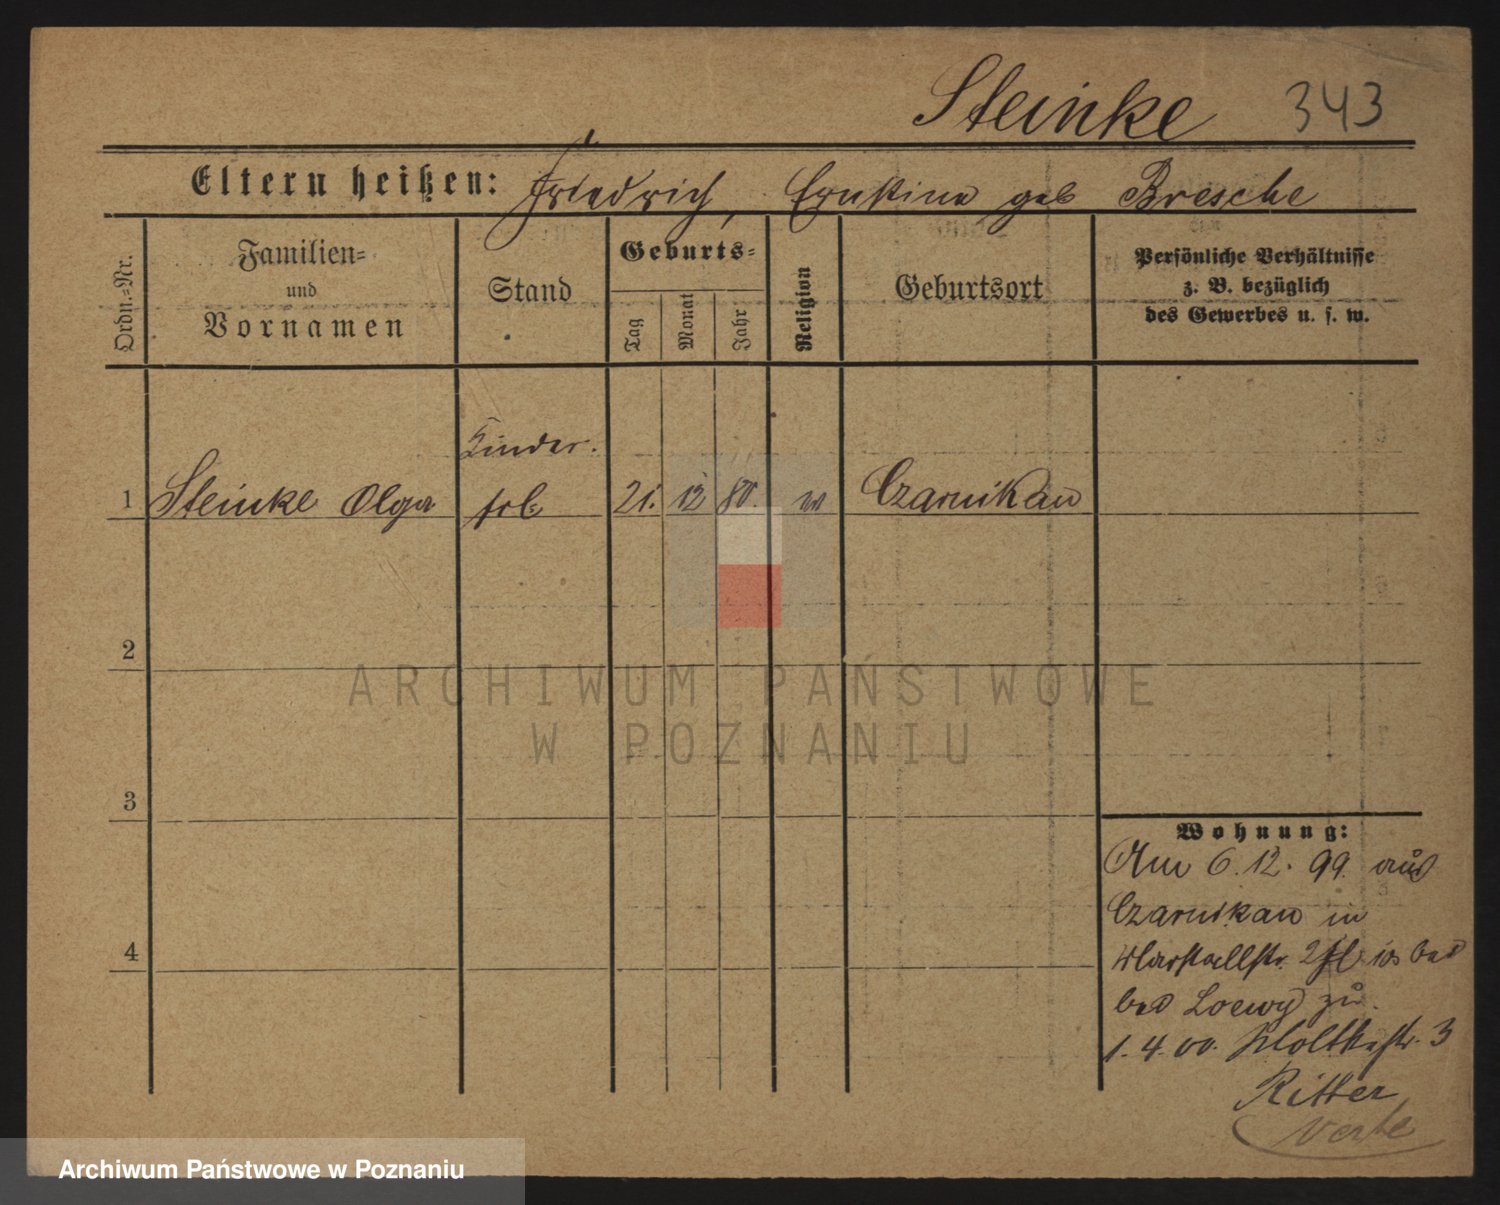 Steinke 343
Eltern heißen: Friedrich, Ernstine geb Bresche
Ordn.-Nr.
Familien-
und
Vornamen
Stand
Geburts-
Tag
Monat
Jahr
Religion
Geburtsort
Persönliche Verhältnisse
z. B. bezüglich
des Gewerbes u. s. w.
Kinder.
1 Steinke Olga frl 21. 12 80. Czarnikau
2
ARCHIWUM PAŃSTWOWE
W POZNANIU
3
Wohnung:
Am 6.12.99. aus
Czarnikau in
4
bei Loewy zu.
1.4.00. Moltkestr. 3
Ritter
Archiwum Państwowe w Poznaniu